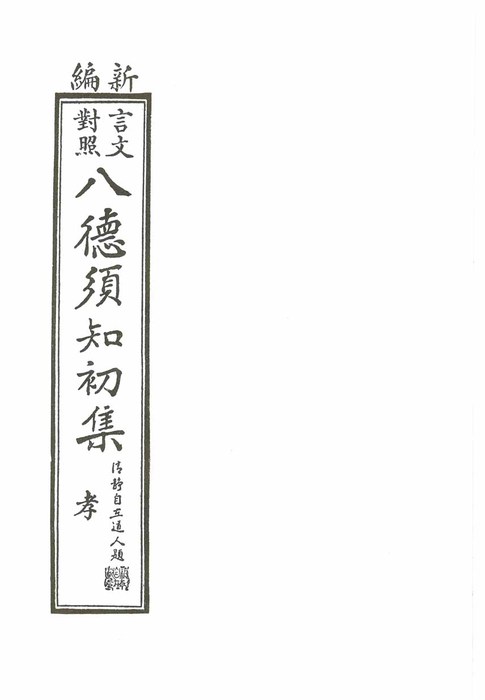 新編
言文
對照
八德須知初集
孝
清靜自在道人題